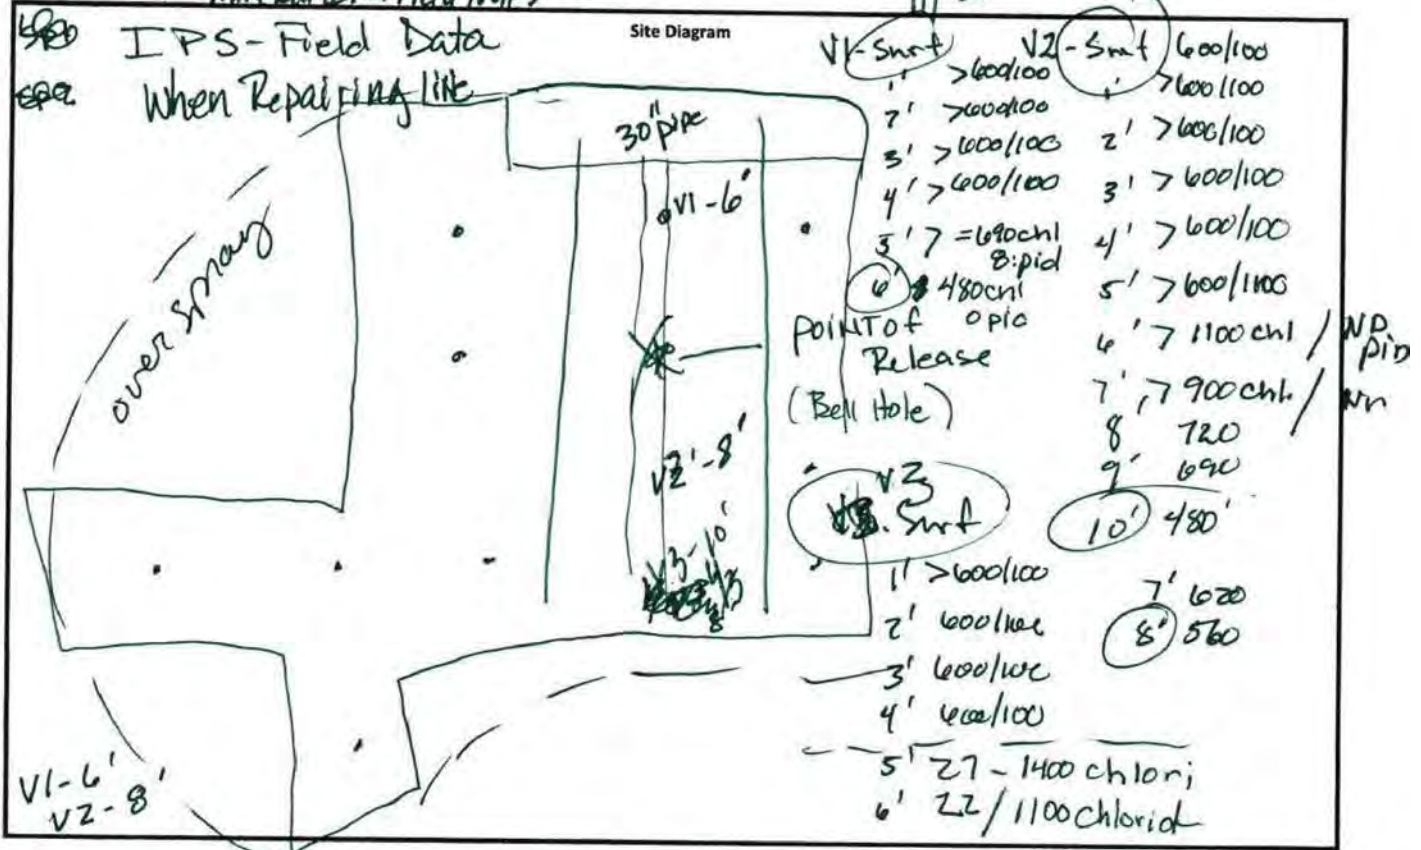 Site Diagram
IPS-Field Data
When Repairing line
over spray
30" pipe
V1-6'
V2'-8'
V3-10'
V1-6'
V2-8'
V1-Surf
1' >600/100
2' >600/100
3' >600/100
4' >600/100
5' > =690chl
8:pid
6' 480chl
0 pid
POINT of
Release
(Bell Hole)
V2-Surf 600/100
1' >600/100
2' >600/100
3' >600/100
4' >600/100
5' >600/1100
6' > 1100 chl / ND
pid
7' > 900 chl /
8' 720
9' 690
10' 480'
V3
Surf
1' >600/100
2' 600/
3' 600/
4' 600/100
5' 27-1400 chlori
6' 22/1100 Chlorid
7' 620
8' 560